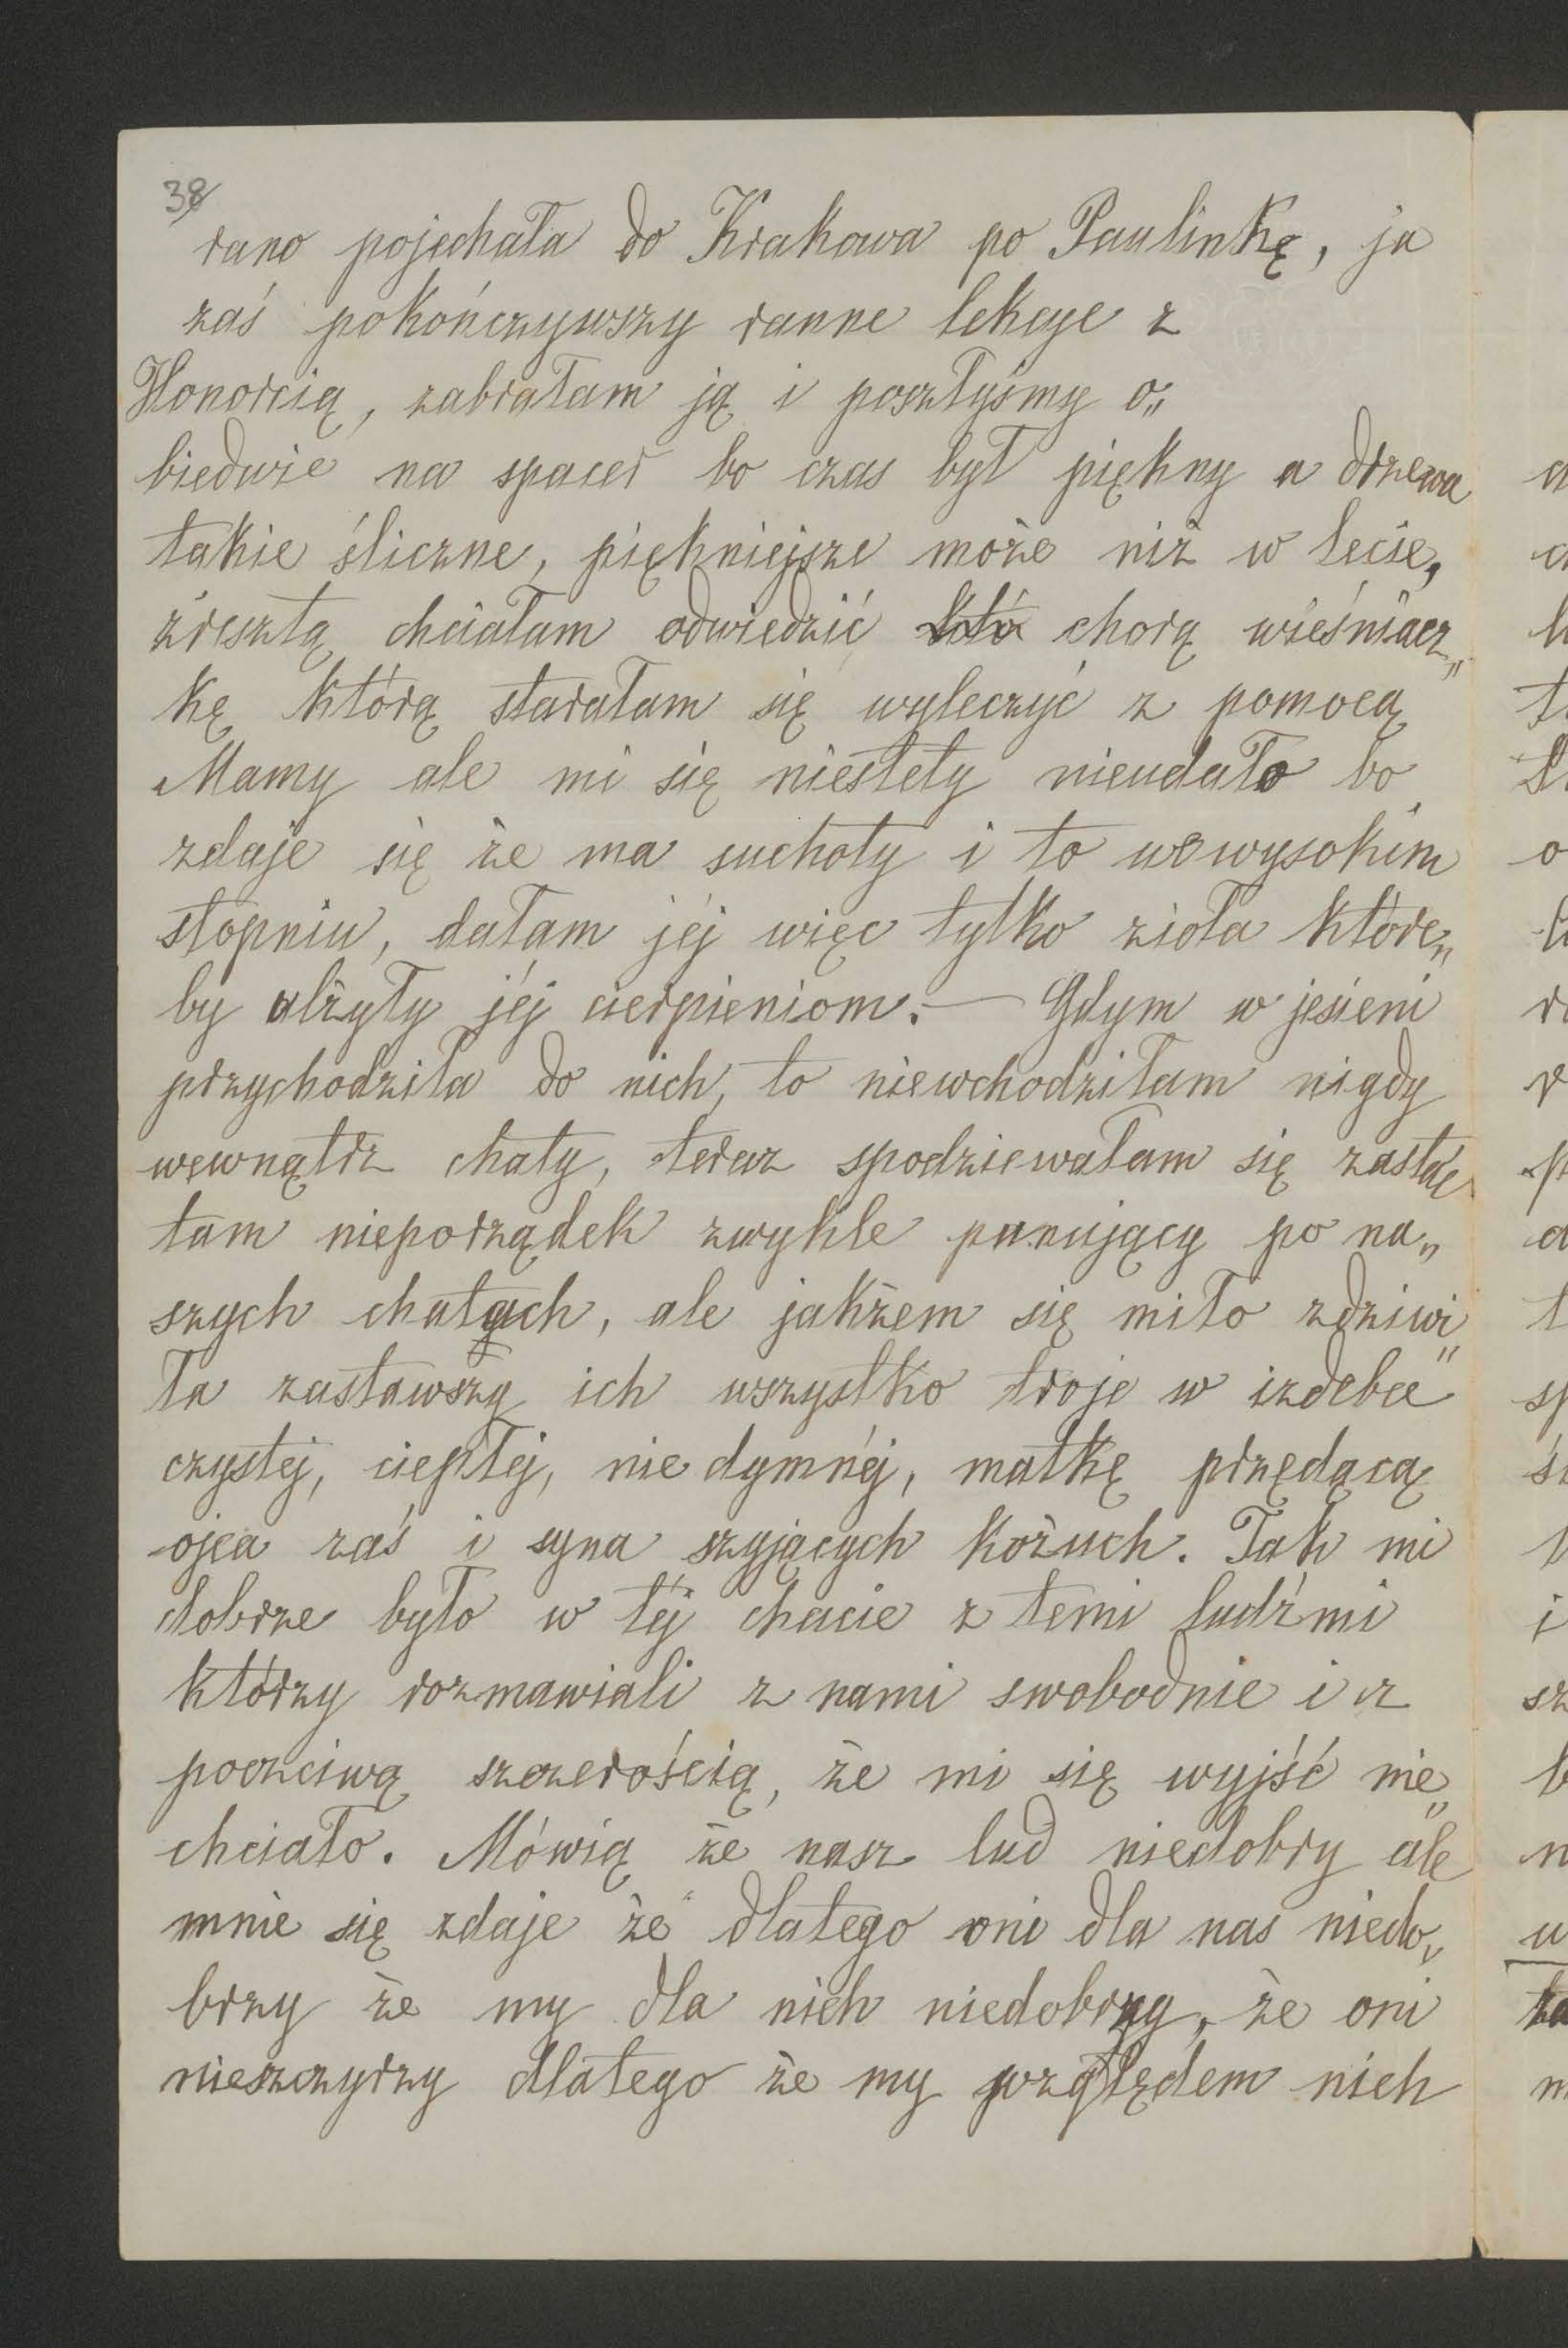 38
rano pojechała do Krakowa po Paulinkę, ja
zaś pokończywszy ranne lekcye z
Honorcią, zabrałam ją i poszłyśmy o„
biedwie na spacer bo czas był piękny a drzewa
takie śliczne, piękniejsze może niż w lecie,
zresztą chciałam odwiedzić chorą wieśniacz„
kę którą starałam się wyleczyć z pomocą
Mamy ale mi się niestety nieudało bo
zdaje się że ma suchoty i to wewysokim
stopniu, dałam jéj więc tylko zioła które„
by ulżyły jéj cierpieniom. — Gdym w jesieni
przychodziła do nich, to niewchodziłam nigdy
wewnątrz chaty, teraz spodziewałam się zastać
tam nieporządek zwykle panujący po na„
szych chatach, ale jakżem się miło zdziwi„
ła zastawszy ich wszystko troje w izdebce
czystej, ciepłej, nie dymnéj, matkę przędącą
ojca zaś i syna szyjących kożuch. Tak mi
dobrze było w téj chacie z temi ludźmi
którzy rozmawiali z nami swobodnie i z
poczciwą szczerością, że mi się wyjść nie„
chciało. Mówią że nasz lud niedobry ale
mnie się zdaje że dlatego oni dla nas niedo„
brzy że my dla nich niedobrzy, że oni
nieszczyrzy dlatego że my względem nich